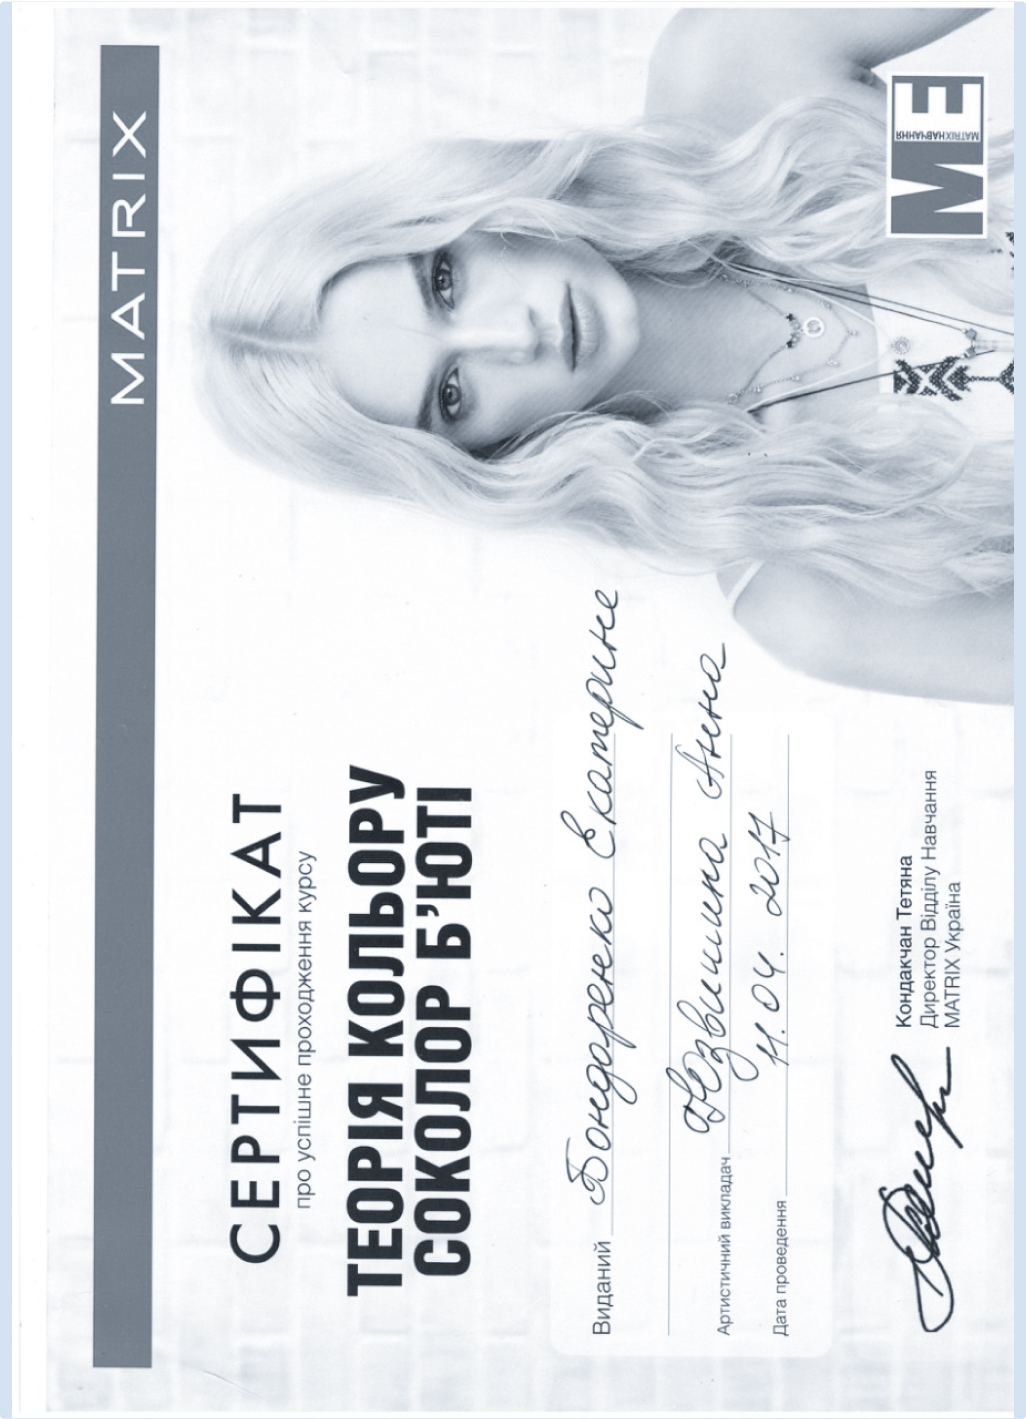 MATRIX
СЕРТИФІКАТ
про успішне проходження курсу
ТЕОРІЯ КОЛЬОРУ
СОКОЛОР Б’ЮТІ
Виданий Бондаренко Екатерине
Артистичний викладач Незвишина Анна
Дата проведення 11.04.2017
Кондакчан Тетяна
Директор Відділу Навчання
MATRIX Україна
ME
MATRIXНАВЧАННЯ